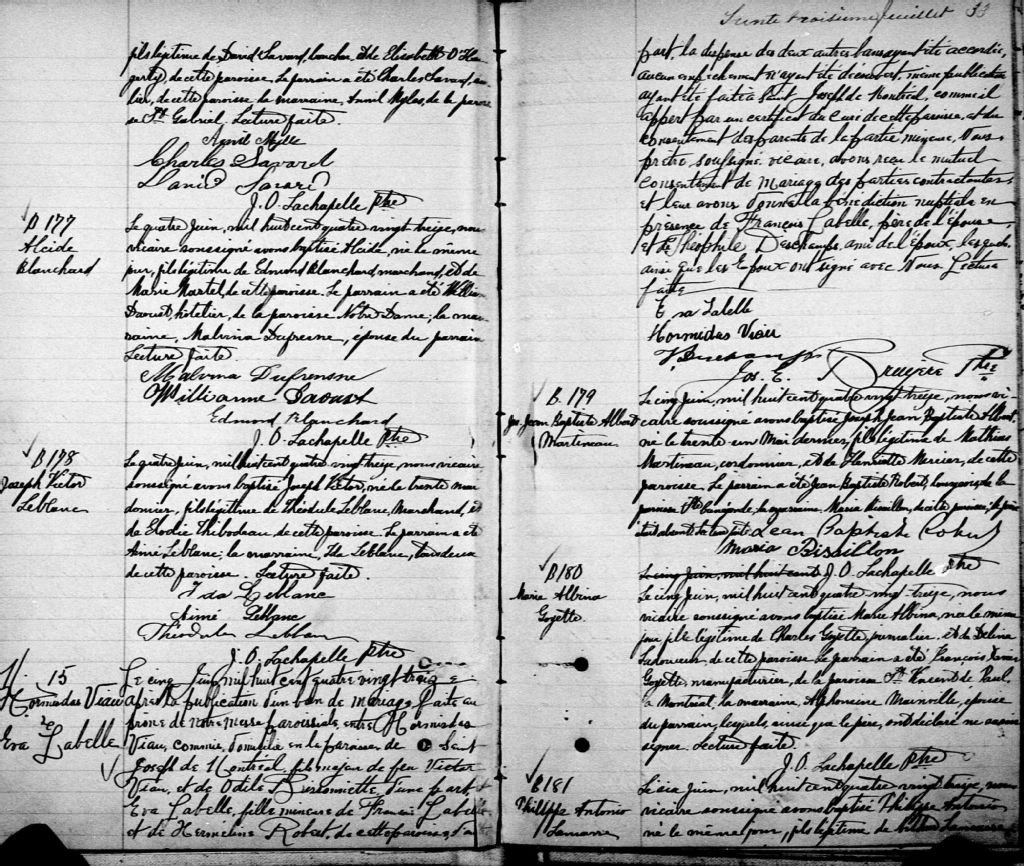 fils légitime de David Savard, boucher et de Elisabeth O'Ha
gerty, de cette paroisse. Le parrain a été Charles Savard,
lier, de cette paroisse la marraine, Annil Myles, de la parois
se St. Gabriel. Lecture faite.
Annil Myle
Charles Savard
David Savard
J. O. Lachapelle Ptre
B 177
Alcide
Blanchard
Le quatre Juin, mil huit cent quatre vingt treize, nous
vicaire soussigné avons baptisé Alcide, né le même
jour, fils légitime de Edmond Blanchard marchand, et de
Marie Martel, de cette paroisse. Le parrain a été William
Daoust, hôtelier, de la paroisse Notre Dame; la mar
raine, Malvina Dufresne, épouse du parrain
Lecture faite.
Malvina Dufrensne
Willianne Daoust
Edmond Blanchard
J. O. Lachapelle Ptre
B 178
Joseph Victor
Leblanc
Le quatre Juin, mil huit cent quatre vingt treize, nous vicaire
soussigné avons baptisé Joseph Victor, né le trente mai
dernier, fils légitime de Théodule Leblanc, Marchand, et
de Elodie Thibodeau de cette paroisse. Le parrain a été
Aimé Leblanc, la marraine, Ida Leblanc, tous deux
de cette paroisse. Lecture faite.
Ida Leblanc
Aimé Leblanc
Théodule Leblanc
J. O. Lachapelle Ptre
M 15
Hormidas Viau
et
Eva Labelle
Le cinq Juin mil huit cent quatre vingt treize
après la publication d'un ban de mariage faite au
prone de notre messe paroissiale, entre Hormisdas
Viau, commis, domicilié en la paroisse de Saint
Joseph de Montreal, fils majeur de feu Victor
Viau, et de Odile Bissonnette, d'une part
Eva Labelle, fille mineure de François Labelle
et de Hermeline Robert de cette paroisse, d'au
Trente troisième feuillet 33
part, la dispense des deux autres bans ayant été accordée,
aucun empêchement n'ayant été découvert, même publication
ayant été faite à Saint Joseph de Montréal, comme il
appert par un certificat du Curé de cette paroisse, et du
consentement des parents de la partie mineure, Nous
prêtre soussigné vicaire, avons reçu le mutuel
consentement de mariage des parties contractantes
et leur avons donné la bénédiction nuptiale en
présence de François Labelle, père de l'épouse
et de Théophile Deschamps ami de l'époux, lesquels
ainsi que les Epoux ont signé avec Nous. Lecture
faite
Eva Labelle
Hormidas Viau
T. Deschamps
Jos. E. Bruyère Ptre
B. 179
Jos. Jean Baptiste Albert
Martineau
Le cinq Juin, mil huit cent quatre vingt treize, nous vi
caire soussigné avons baptisé Joseph Jean Baptiste Albert
né le trente un Mai dernier, fils légitime de Mathias
Martineau, cordonnier, et de Henriette Mercier, de cette
paroisse. Le parrain a été Jean Baptiste Robert, de la
paroisse Ste Cunégonde, la marraine Maria Bissillon, de cette paroisse, le père
étant absent. Lecture faite. Jean Baptiste Robert
Maria Bissillon
Le cinq Juin, mil huit cent J. O. Lachapelle Ptre
B180
Marie Albina
Goyette
Le cinq Juin, mil huit cent quatre vingt treize, nous
vicaire soussigné avons baptisé Marie Albina, née le même
jour fille légitime de Charles Goyette journalier. et de Delina
Ladouceur de cette paroisse. Le parrain a été François Xavier
Goyette, manufacturier, de la paroisse St. Vincent de Paul,
à Montréal, la marraine, Alphonsine Mainville, épouse
du parrain, lesquels, ainsi que le père, ont déclaré ne savoir
signer. Lecture faite.
J. O. Lachapelle Ptre
B181
Philippe Antonio
Lamarre
Le six Juin, mil huit cent quatre vingt treize, nous
vicaire soussigné avons baptisé Philippe Antonio
né le même jour, fils légitime de